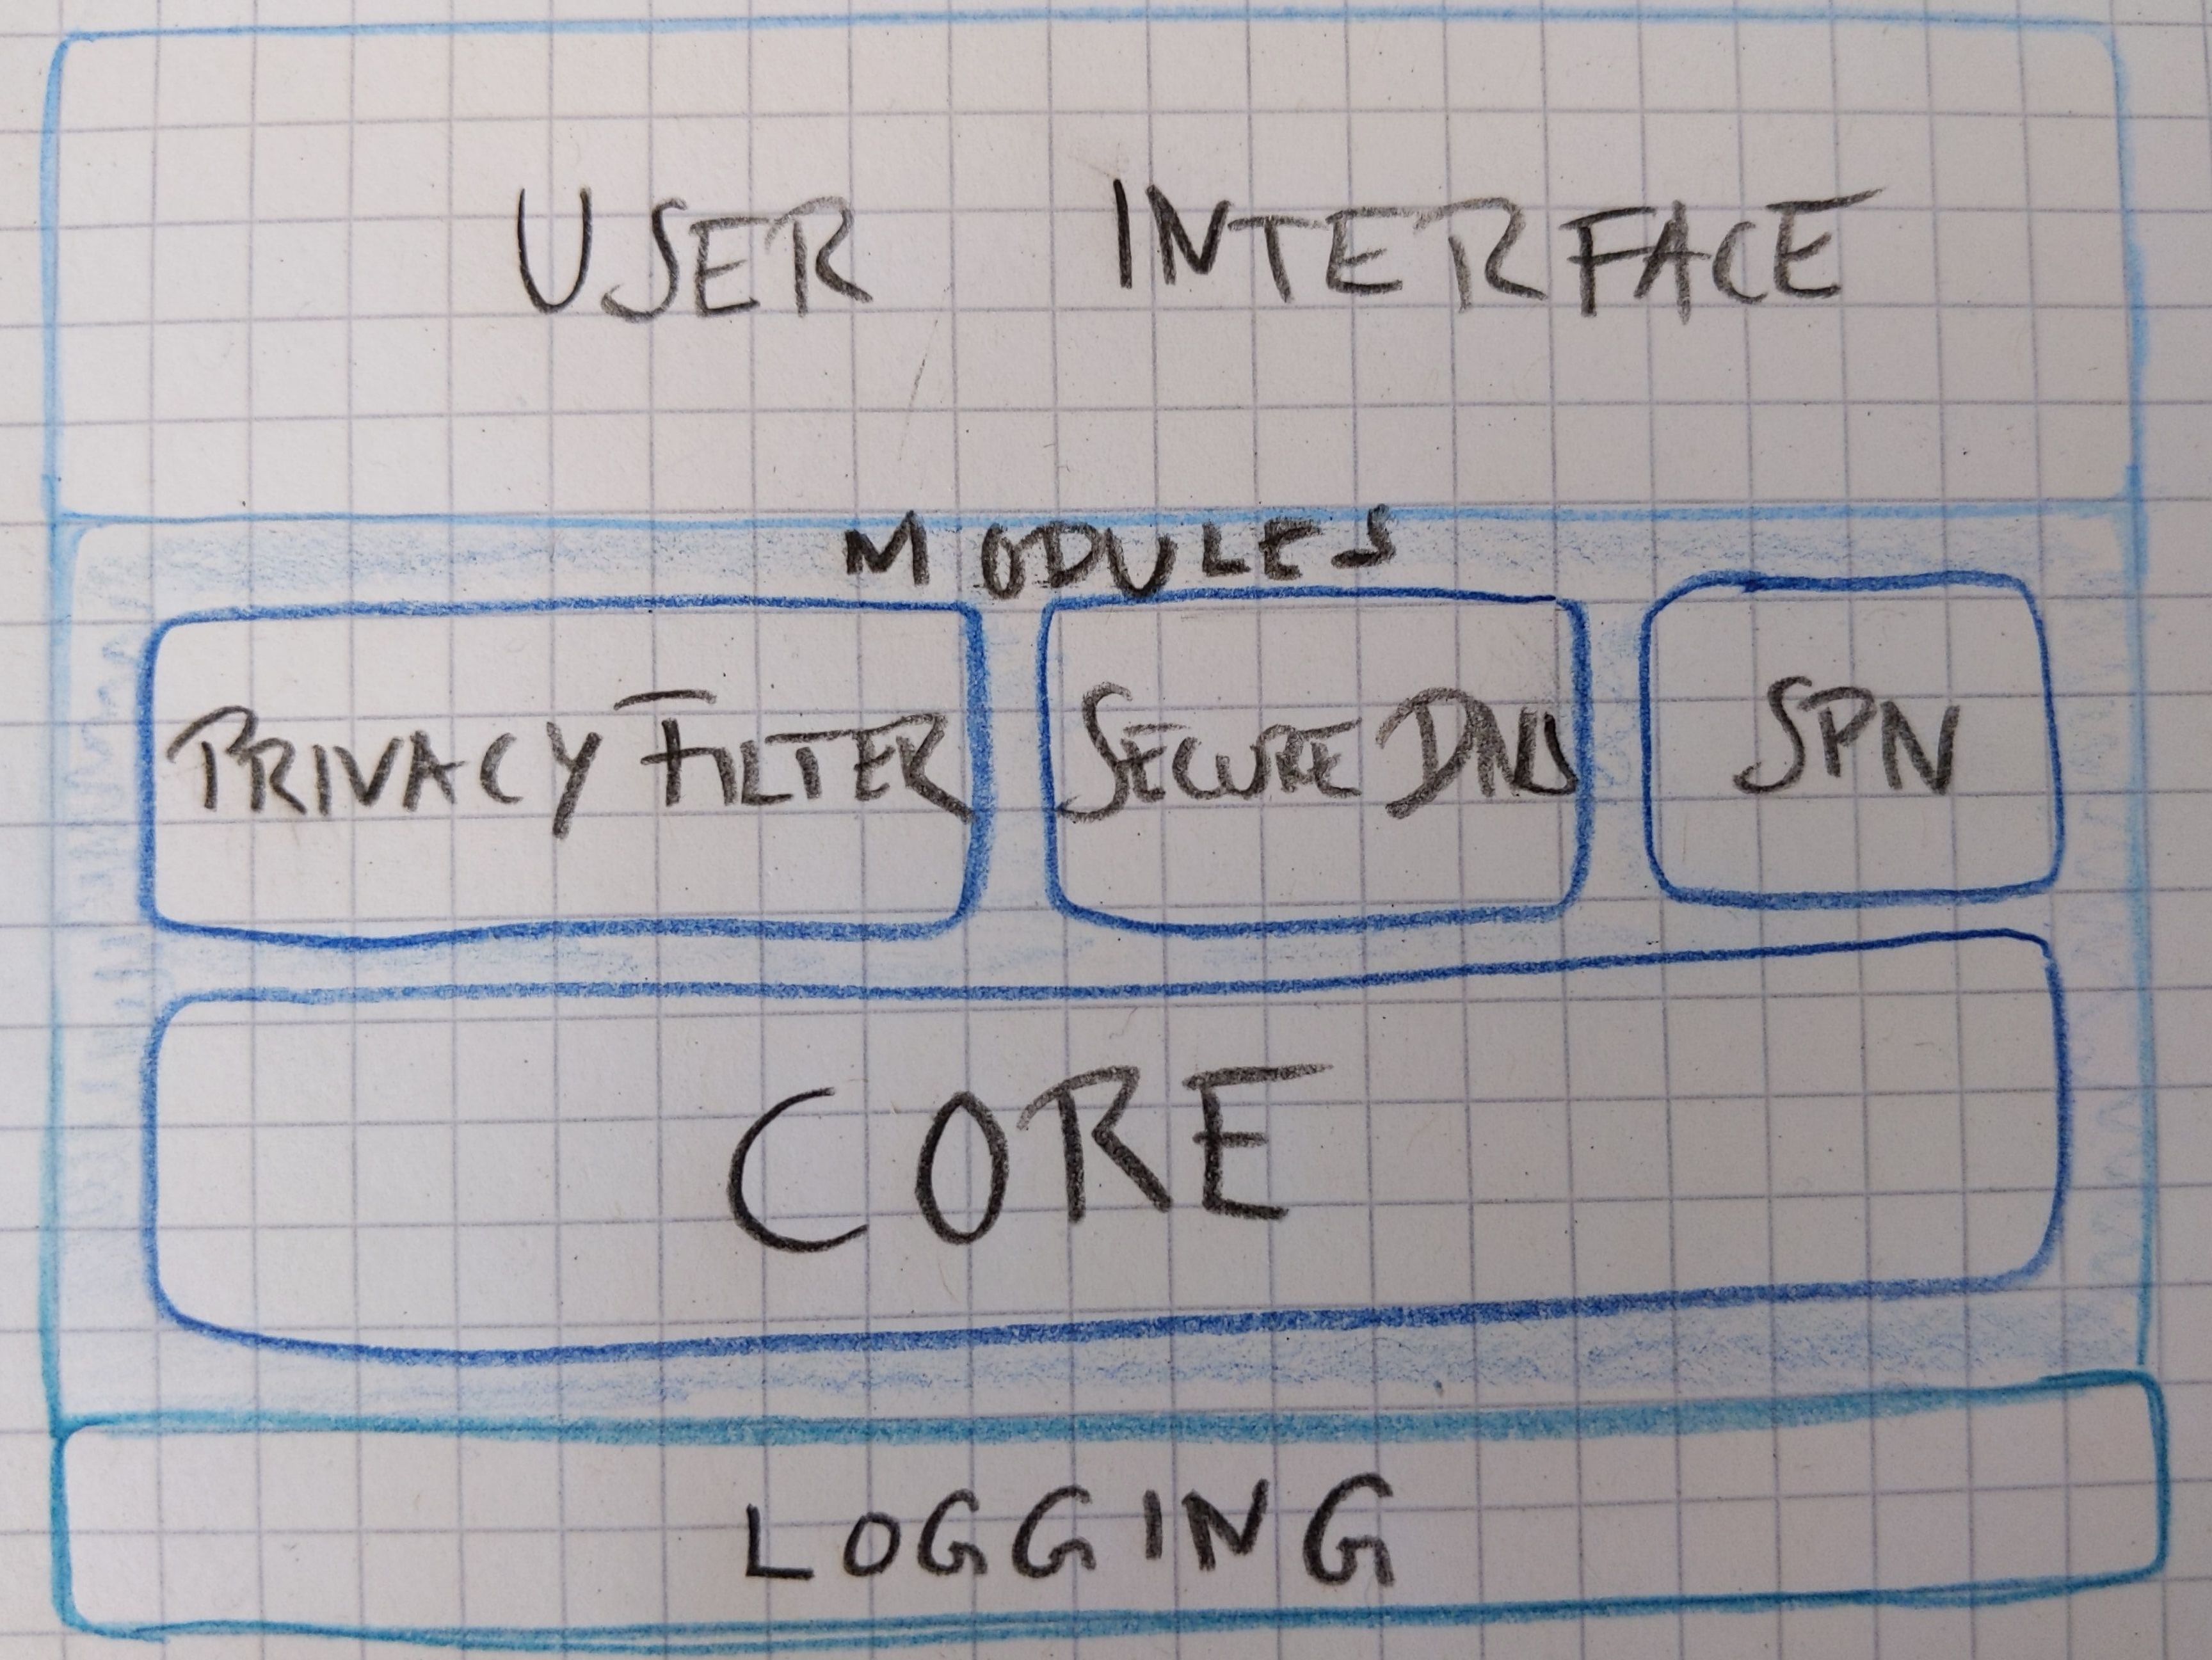 USER INTERFACE
MODULES
PRIVACY FILTER
SECURE DNS
SPN
CORE
LOGGING